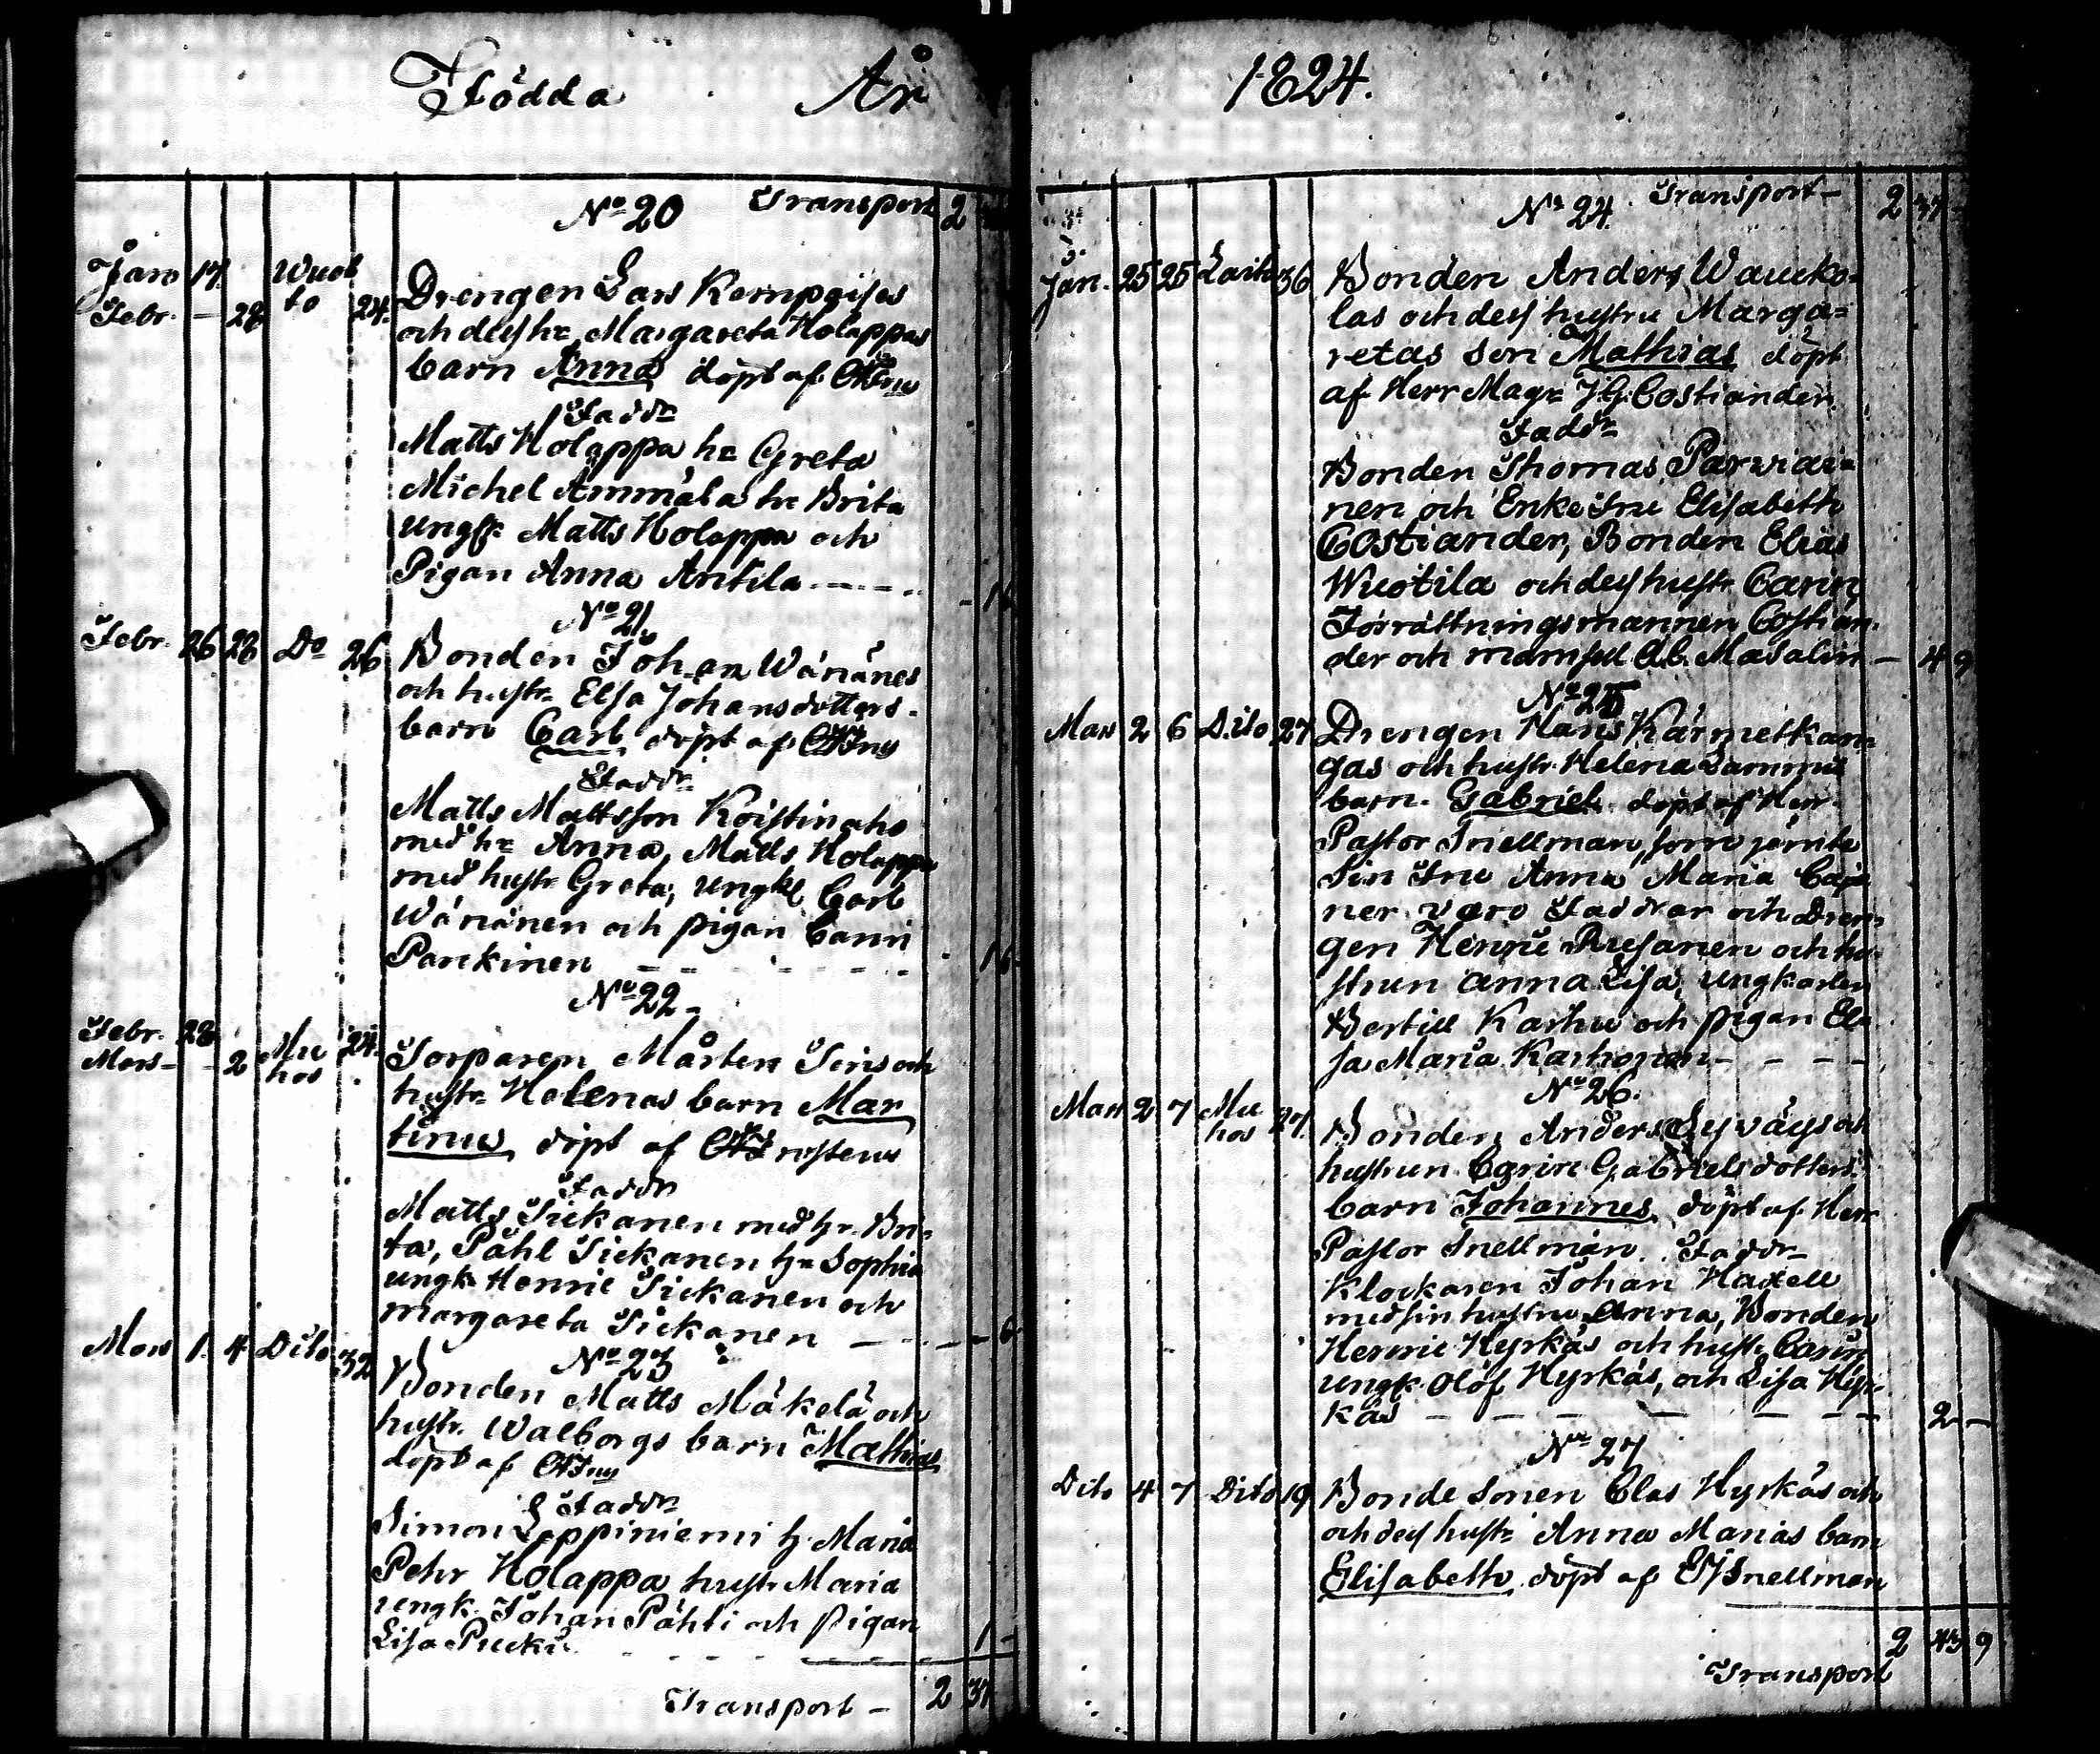 Födda År 1824.
No 20 Transport 2
Jan 17. Wuol
Febr. - 28 to 24.
Drengen Lars Kempaises
och dess hu Margareta Holappas
barn Anna döpt af
Faddr
Matts Holappa hu Greta
Michel Ämmälä hu Brita
ungk Matts Holappa och
Pigan Anna Antila - - - -
No 21
Febr. 26 28 Do 26
Bonden Johan Wänänes
och hustr Elsa Johansdotters
barn Carl döpt af
Faddr
Matts Mattsson Koistinaho
med hu Anna, Matts Holappa
med hustr Greta, ungkl Carl
Wänänen och pigan Carin
Parckinen - - - - - 16
No 22
Febr. 28 Mu 24.
Mars - - 2 hos
Torparen Mårten och
hustr Helenas barn Mar
tinus döpt af
Faddr
Matts Sickanen med hu Bri-
ta, Påhl Sickanen hu Sophia
ungk Henric Sickanen och
Margareta Sickanen - - - 6
No 23
Mars 1. 4 Dito 32
Bonden Matts Mäkelä och
hustr. Walborgs barn Mathias
döpt af
Faddr
Simon Leppiniemi h. Maria
Pehr Holappa hustr Maria
ungk. Johan Pähti och pigan
Lisa Pucki - - - - 1 -
Transport - 2 37
No 24. Transport - 2 37 -
Jan. 25 25 Laito 36
Bonden Anders Waucko-
las och dess hustru Marga=
retas son Mathias döpt
af Herr Magr J G Costiander
Faddr
Bonden Thomas Parviai-
nen och Enke Fru Elisabeth
Costiander, Bonden Elias
Wuotila och dess hustr Carin,
Förrättningsmannen Costian-
der och mamsell Masalin - 4 9
No 25
Mars 2 6 Dito 27
Drengen Hans Kärmetkan-
gas och hustr. Helena Lammis
barn. Gabriel döpt af Herr
Pastor Snellman, som jämte
sin Fru Anna Maria Caja
ner voro Faddrar och Dren-
gen Henric Rusanen och hu-
strun Anna Lisa, ungkarlen
Bertill Karhu och pigan El
sa Maria Karhonen - - - -
No 26.
Mars 2 7 Mu 27.
hos
Bonden Anders Syväys och
hustrun Carin Gabrielsdotters
barn Johannes döpt af Herr
Pastor Snellman. Faddr
Klockaren Johan Haxell
med sin hustru Anna, Bonden
Henric Hyrkäs och hustr. Carin
ungk. Olof Hyrkäs, och Lisa Hyr-
käs - - - - - - 2 -
No 27
Dito 4 7 Dito 19
Bonde Sonen Clas Hyrkäs och
och dess hustr Anna Marias barn
Elisabeth döpt af Snellman
2 43 9
Transport